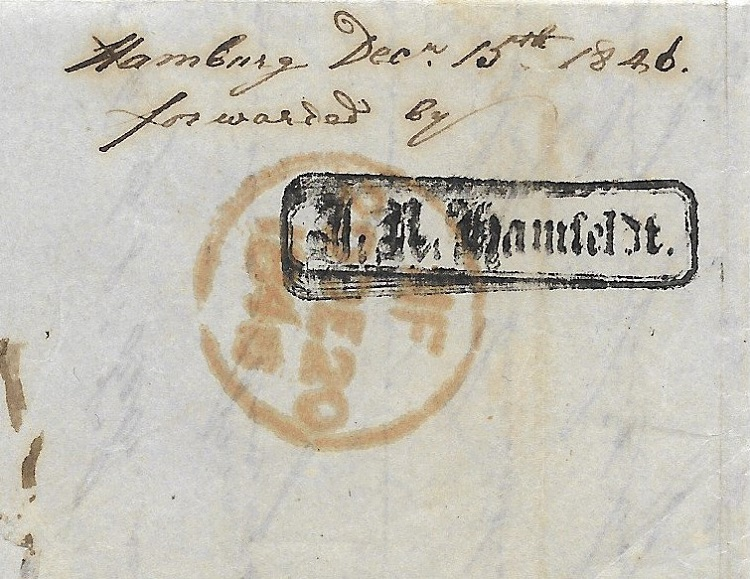 Hamburg Decr. 15th 1846.
forwarded by
J. N. Hamfeldt.